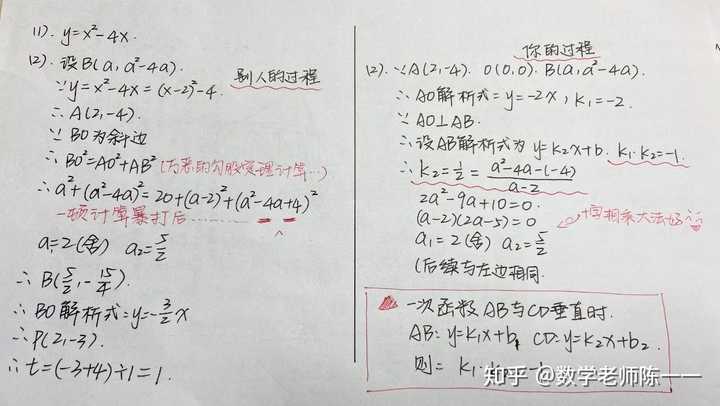 (1). y=x²-4x.
(2). 设B(a, a²-4a).
别人的过程
∵y=x²-4x=(x-2)²-4.
∴A(2,-4).
∵BO为斜边
∴BO²=AO²+AB²(万恶的勾股定理计算…)
∴a²+(a²-4a)²=20+(a-2)²+(a²-4a+4)²
一顿计算暴打后………
a₁=2(舍) a₂=5/2
∴B(5/2,-15/4).
∴BO解析式:y=-3/2x
∴P(2,-3).
∴t=(-3+4)÷1=1.
你的过程
(2). ∵A(2,-4). O(0,0). B(a,a²-4a).
∴AO解析式=y=-2x, k₁=-2.
∵AO⊥AB.
∴设AB解析式为y=k₂x+b. k₁·k₂=-1.
∴k₂=1/2=a²-4a-(-4)/a-2
2a²-9a+10=0.
(a-2)(2a-5)=0
十字相乘大法
a₁=2(舍) a₂=5/2
(后续与左边相同.
一次函数AB与CD垂直时.
AB: y=k₁x+b₁ CD:y=k₂x+b₂.
则= k₁·
知乎 @数学老师陈一一